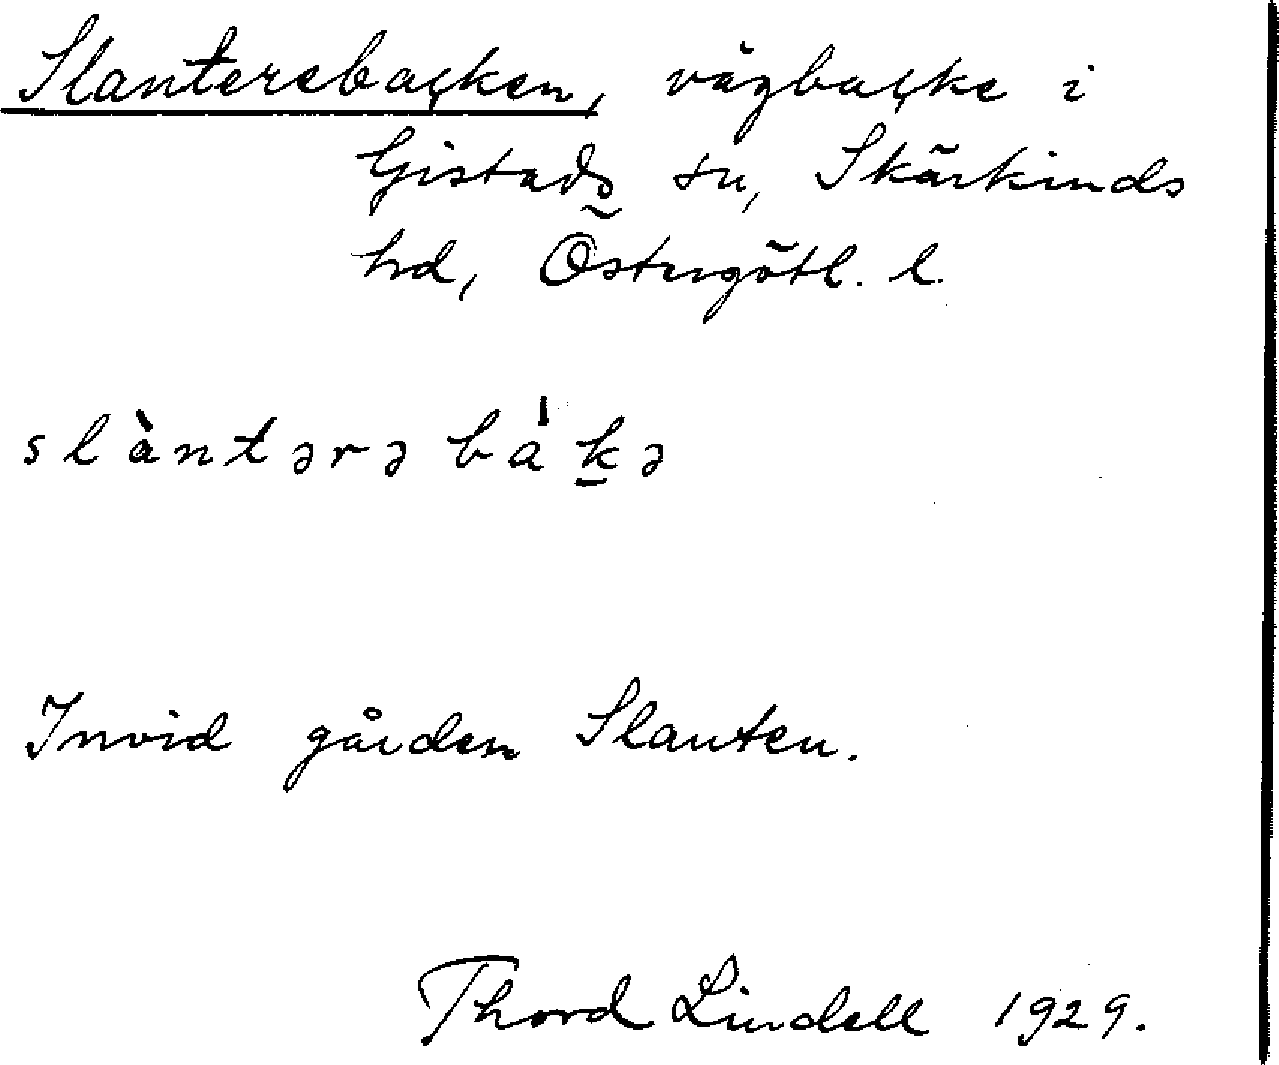 Slanterebacken, vägbacke i
Gistads sn, Skärkinds
hd, Östergötl. l.
slàntərə bá̍k̲ə
Invid gården Slanten.
Thord Lindell 1929.